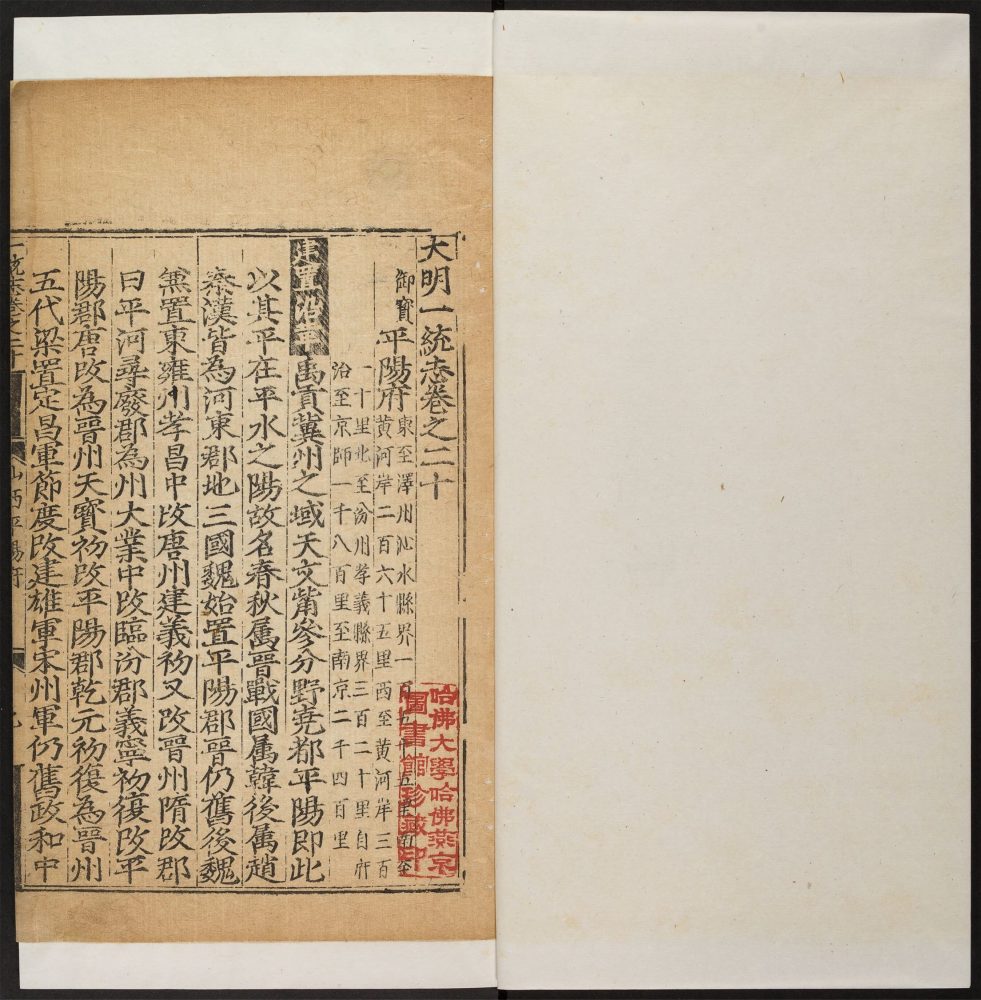 大明一統志卷之二十
御寶
平陽府
東至澤州沁水縣界一百五十五里南至
黄河岸二百六十五里西至黄河岸三百
一十里北至汾州孝義縣界三百二十里自府
治至京師一千八百里至南京二千四百里
建置沿革 禹貢冀州之域天文觜參分野堯都平陽即此
以其平在平水之陽故名春秋属晉戰國属韓後属趙
秦漢皆為河東郡地三國魏始置平陽郡晉仍舊後魏
兼置東雍州孝昌中改唐州建義初又改晉州隋改郡
曰平河尋廢郡為州大業中改臨汾郡義寧初復改平
陽郡唐改為晉州天寳初改平陽郡乾元初復為晉州
五代梁置定昌軍節度改建雄軍宋州軍仍舊政和中
一統志卷之二十
山西平陽府
哈佛大學哈佛燕京
圖書館珍藏印